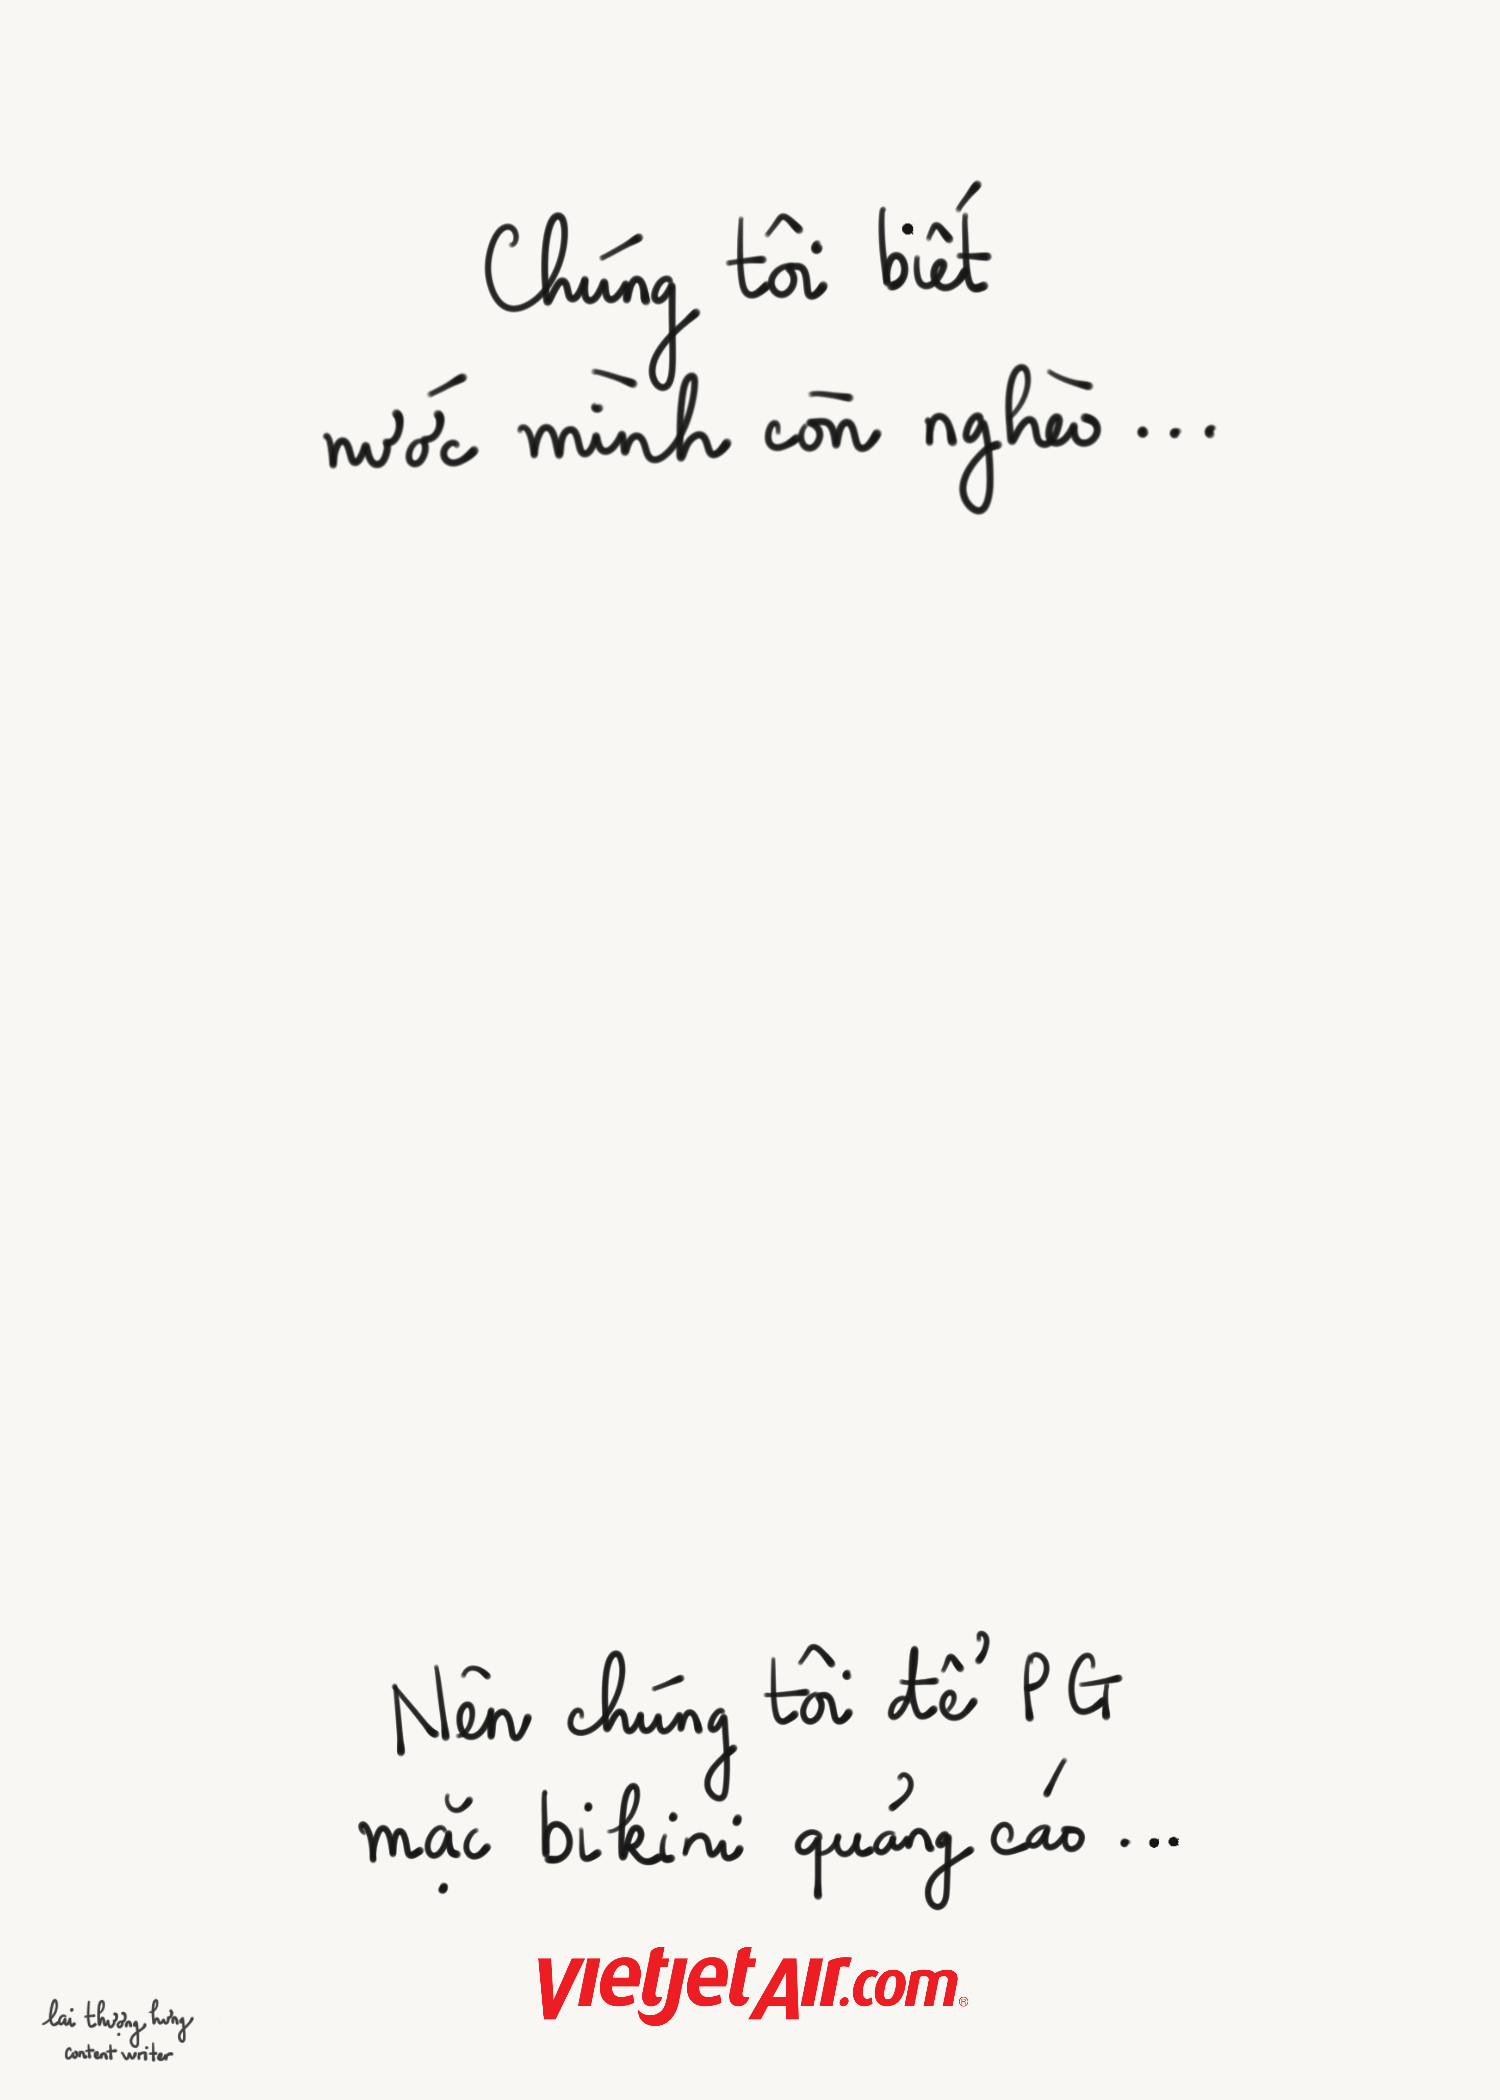 Chúng tôi biết
nước mình còn nghèo...
Nên chúng tôi để PG
mặc bikini quảng cáo...
vietjetAir.com®
lai thượng hưng
content writer